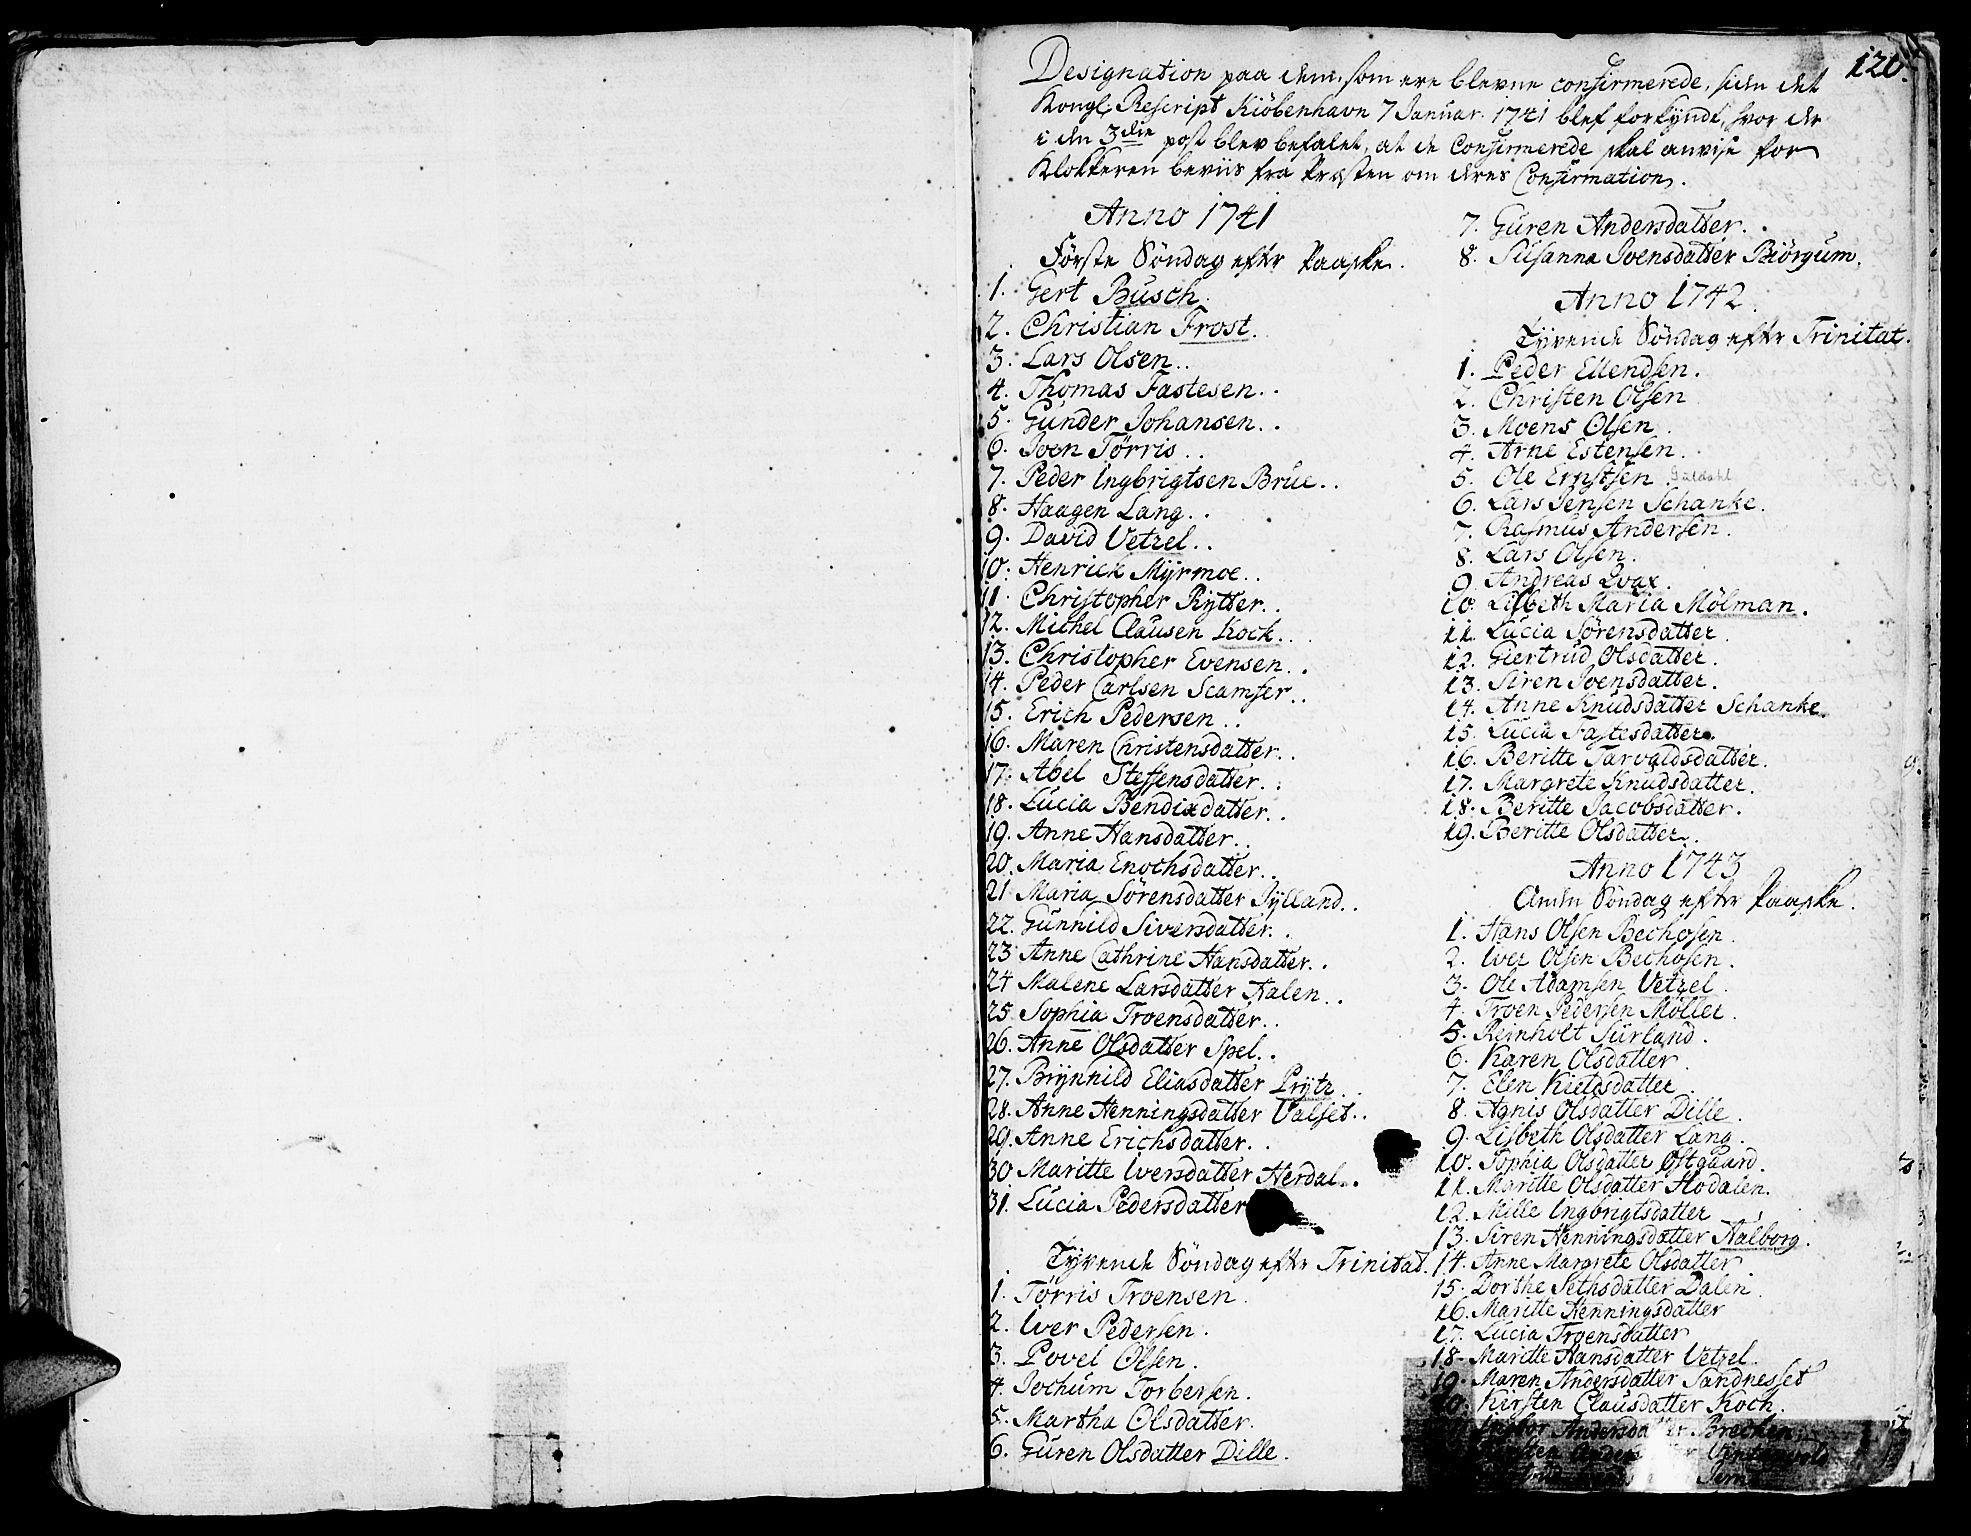 120.
Designation paa dem, som ere blevne confirmerede, siden det
Kongl. Rescript Kiöbenhavn 7 Januar. 1741 blef forkyndt, hvor der
i den 3die post blev befalet, at de Confirmerede skal anvise for
Klokkeren beviis fra Præsten om deres Confirmation.
Anno 1741
Første Söndag efter Paaske.
1. Gert Busch.
2. Christian Frost.
3. Lars Olsen..
4. Thomas Fastesen..
5. Gunder Johansen..
6. Joen Törris..
7. Peder Ingbrigtsen Brue..
8. Haagen Lang..
9. David Vetzel..
10. Henrick Myrmoe..
11. Christopher Rytter..
12. Michel Clausen Kock..
13. Christopher Evensen..
14. Peder Carlsen Scamfer..
15. Erich Pedersen..
16. Maren Christensdatter..
17. Abel Steffensdatter..
18. Lucia Bendixdatter..
19. Anne Hansdatter..
20. Maria Enochsdatter..
21. Maria Sörensdatter Jylland..
22. Gunnild Siversdatter..
23. Anne Cathrine Hansdatter..
24. Malene Larsdatter Aalen..
25. Sophia Troensdatter..
26. Anne Olsdatter Spel..
27. Brynnild Eliasdatter Prytz..
28. Anne Henningsdatter Valset..
29. Anne Erichsdatter..
30. Maritte Iversdatter Herdal..
31. Lucia Pedersdatter
Tyvende Söndag efter Trinitat.
1. Törris Troensen.
2. Iver Pedersen.
3. Povel Olsen.
4. Jochum Torbersen.
5. Martha Olsdatter.
6. Guren Olsdatter Dille.
7. Guren Andersdatter.
8. Susanna Joensdatter Biörgum.
Anno 1742
Tyvende Söndag efter Trinitat.
1. Peder Ellendsen.
2. Christen Olsen
3. Moens Olsen.
4. Arne Estensen.
5. Ole Ernstsen Guldahl
6. Lars Jensen Schanke.
7. Rasmus Andersen.
8. Lars Olsen.
9. Andreas Qvax.
10. Lisbeth Maria Mölman.
11. Lucia Sörensdatter.
12. Giertrud Olsdatter.
13. Siren Joensdatter.
14. Anne Knudsdatter Schanke.
15. Lucia Fastesdatter.
16. Beritte Tarvaldsdatter.
17. Margrete Knudsdatter.
18. Beritte Jacobsdatter.
19. Beritte Olsdatter.
Anno 1743
Anden Söndag efter Paaske.
1. Hans Olsen Bechosen.
2. Iver Olsen Bechosen.
3. Ole Adamsen Vetzel.
4. Troen Pedersen Möller.
5. Reinholt Surland.
6. Karen Olsdatter.
7. Elen Kieldsdatter.
8. Agnis Olsdatter Dille.
9. Lisbeth Olsdatter Lang.
10. Sophia Olsdatter Östgaard.
11. Maritte Olsdatter Hodalen.
12. Mille Ingbrigtsdatter
13. Siren Henningsdatter Aalborg.
14. Anne Margrete Olsdatter
15. Dorthe Sethsdatter Dalen.
16. Maritte Henningsdatter
17. Lucia Troensdatter
18. Maritte Hansdatter Vetzel.
19. Maren Andersdatter Sandnesset
20. Kirsten Clausdatter Koch.
Andersdatter Brecken